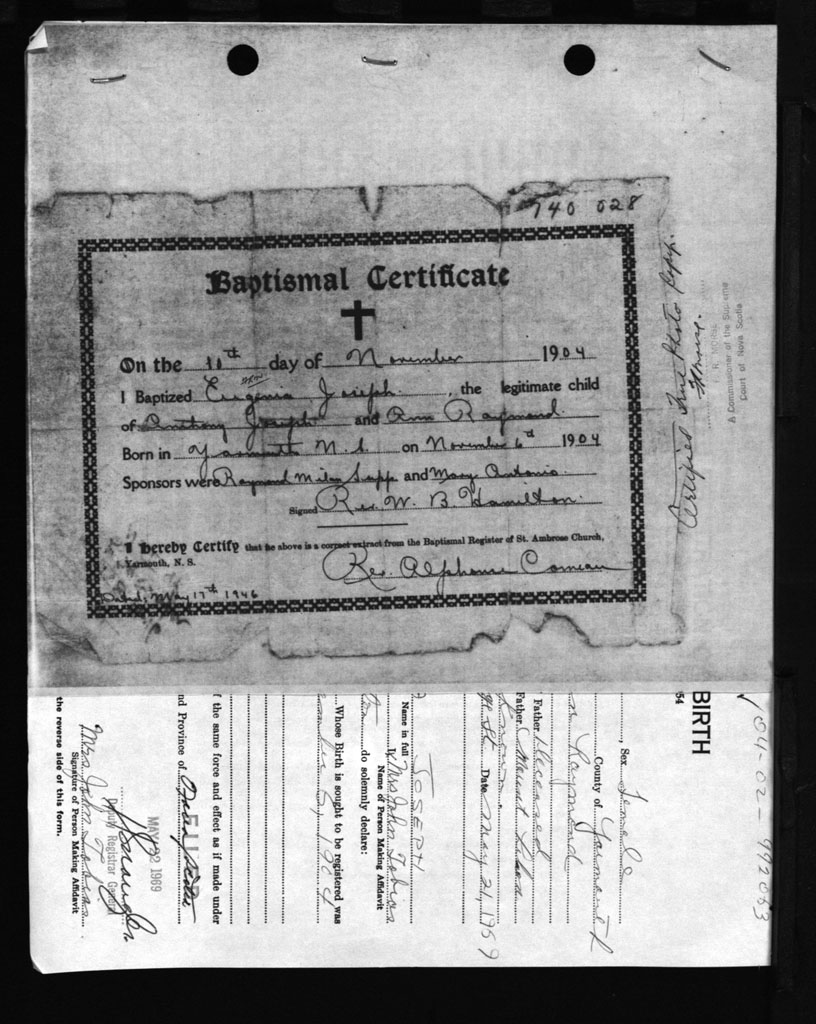 740 028
Baptismal Certificate
On the 10th day of November 1904
I Baptized Eugenia Joseph, the legitimate child
of Anthony Joseph and Ann Raymond
Born in Yarmouth N. S. on November 6th 1904
Sponsors were Raymond Sapp and Mary Antonio
Signed Rev. W. B. Hamilton.
I hereby Certify that he above is a correct extract from the Baptismal Register of St. Ambrose Church,
Yarmouth, N. S.
Rev. Alphonse Comeau
Dated, May 17th 1946
Certified True Photo Copy.
A Commissioner of the Supreme
Court of Nova Scotia
BIRTH
54
, Sex Female
County of Yarmouth
Raymond
Father Deceased
Father Mount
St. Date May 21, 1959
JOSEPH
Name in full
I, Mrs John Tobias
Name of Person Making Affidavit
do solemnly declare:
Whose Birth is sought to be registered was
6, 1904
f the same force and effect as if made under
nd Province of
FILED
MAY 22 1969
Deputy Registrar General
Mrs John Tobias
Signature of Person Making Affidavit
the reverse side of this form.